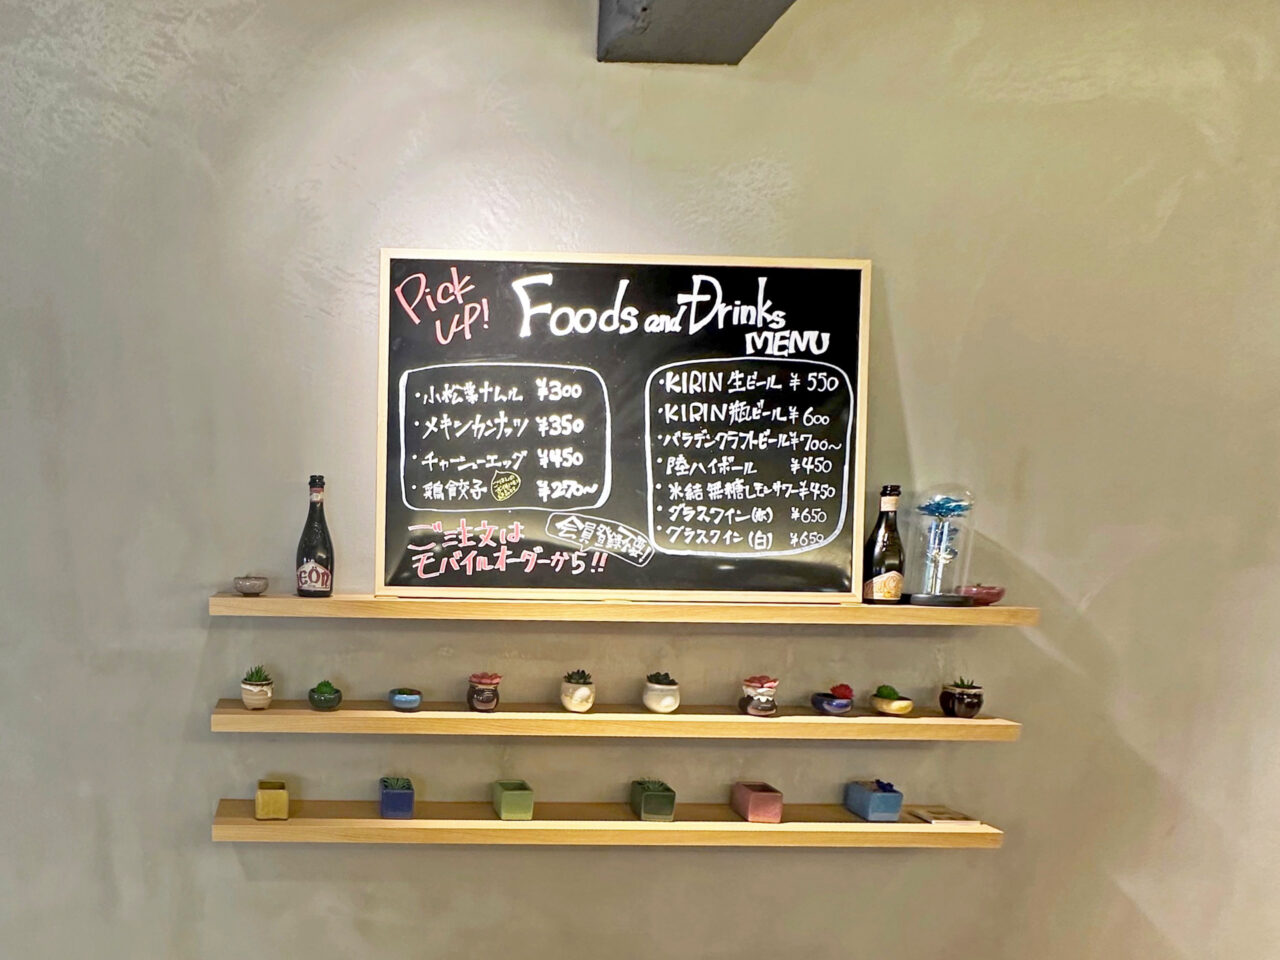 Pick
up!
Foods and Drinks
MENU
・小松菜ナムル ¥300
・メキシカンナッツ ¥350
・チャーシューエッグ ¥450
・鶏餃子 ¥270〜
ご注文は
モバイルオーダーから!!
会員登録不要!
・KIRIN 生ビール ¥550
・KIRIN 瓶ビール ¥600
・バラデンクラフトビール ¥700〜
・陸ハイボール ¥450
・氷結 無糖レモンサワー ¥450
・グラスワイン(赤) ¥650
・グラスワイン(白) ¥650